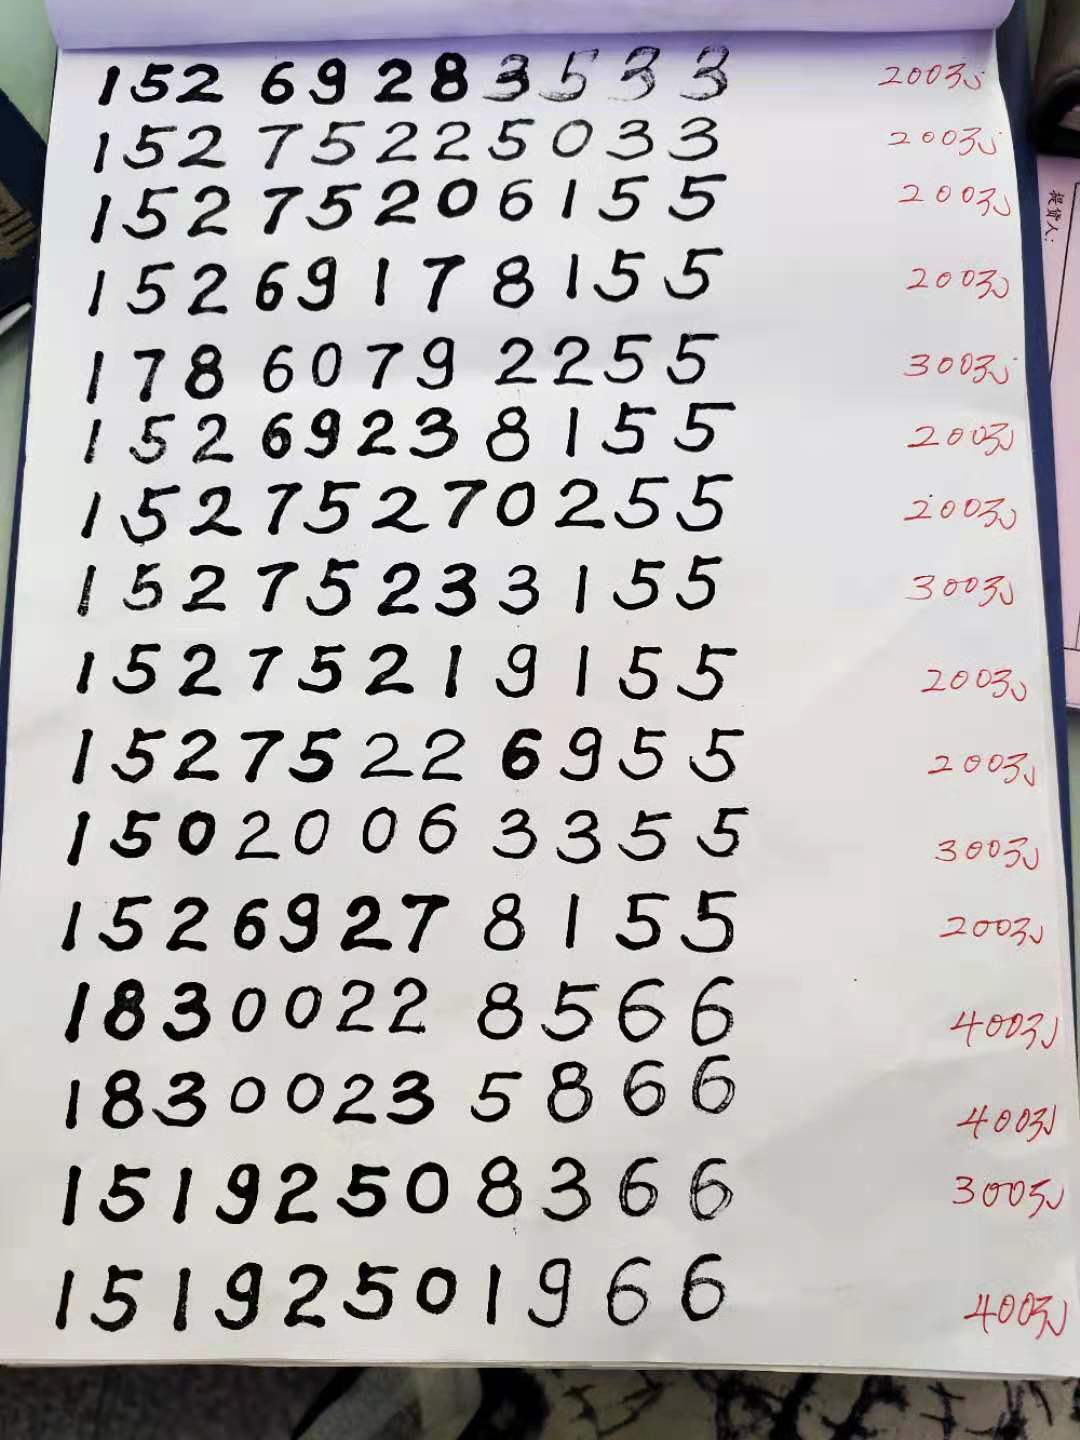 152 6928 3533 200元
152 7522 5033 200元
152 7520 6155 200元
152 6917 8155 200元
178 6079 2255 300元
152 6923 8155 200元
152 7527 0255 200元
152 7523 3155 300元
152 7521 9155 200元
152 7522 6955 200元
150 2006 3355 300元
152 6927 8155 200元
183 0022 8566 400元
183 0023 5866 400元
151 9250 8366 300元
151 9250 1966 400元
提货人：